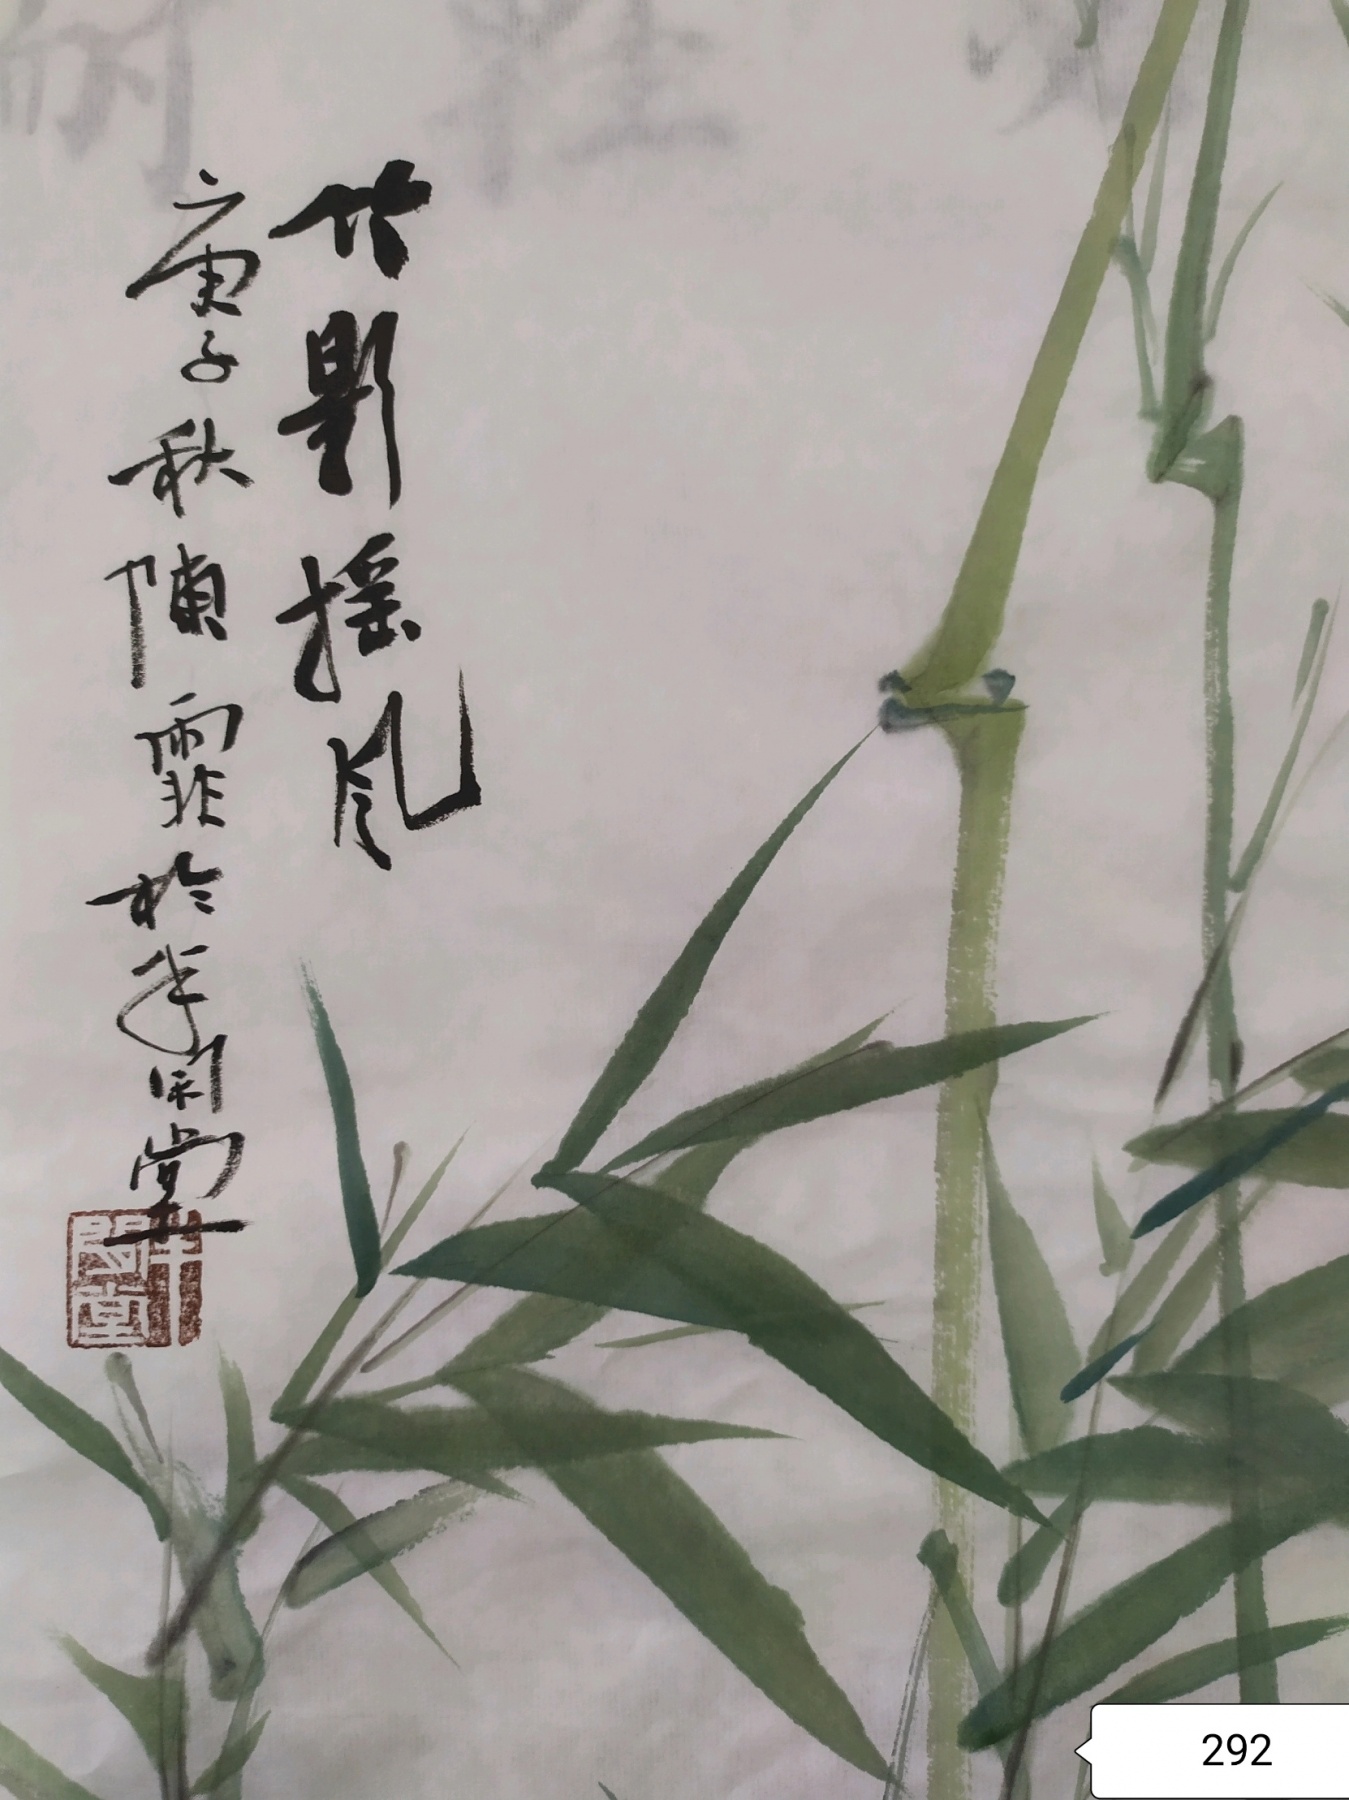 竹影摇风
庚子秋陳霏於半闲堂
半閑堂
292